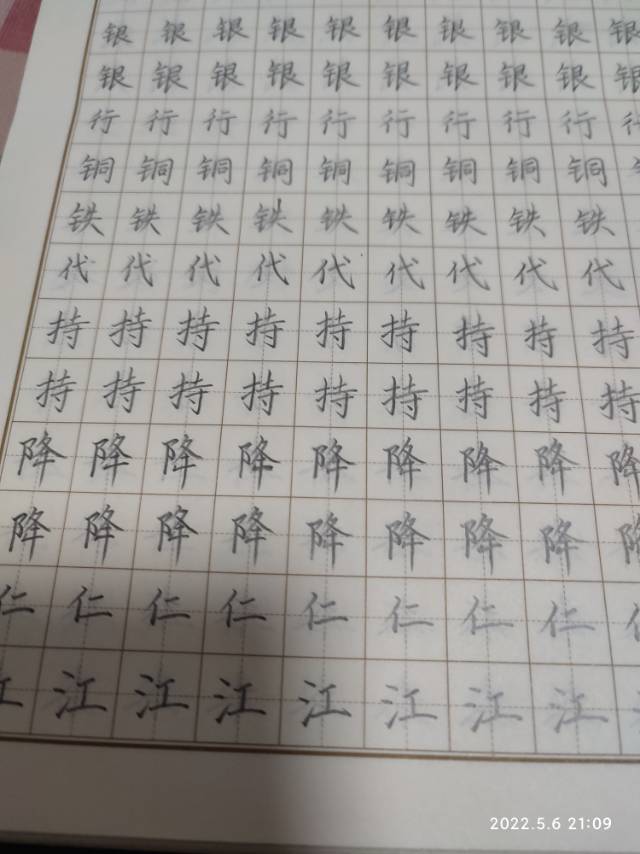 银银银银银银银银银银
银银银银银银银银银银
行行行行行行行行行
铜铜铜铜铜铜铜铜铜
铁铁铁铁铁铁铁铁铁
代代代代代代代代代
持持持持持持持持持
持持持持持持持持持
降降降降降降降降降
降降降降降降降降降
仁仁仁仁仁仁仁仁
江江江江江江江
2022.5.6 21:09